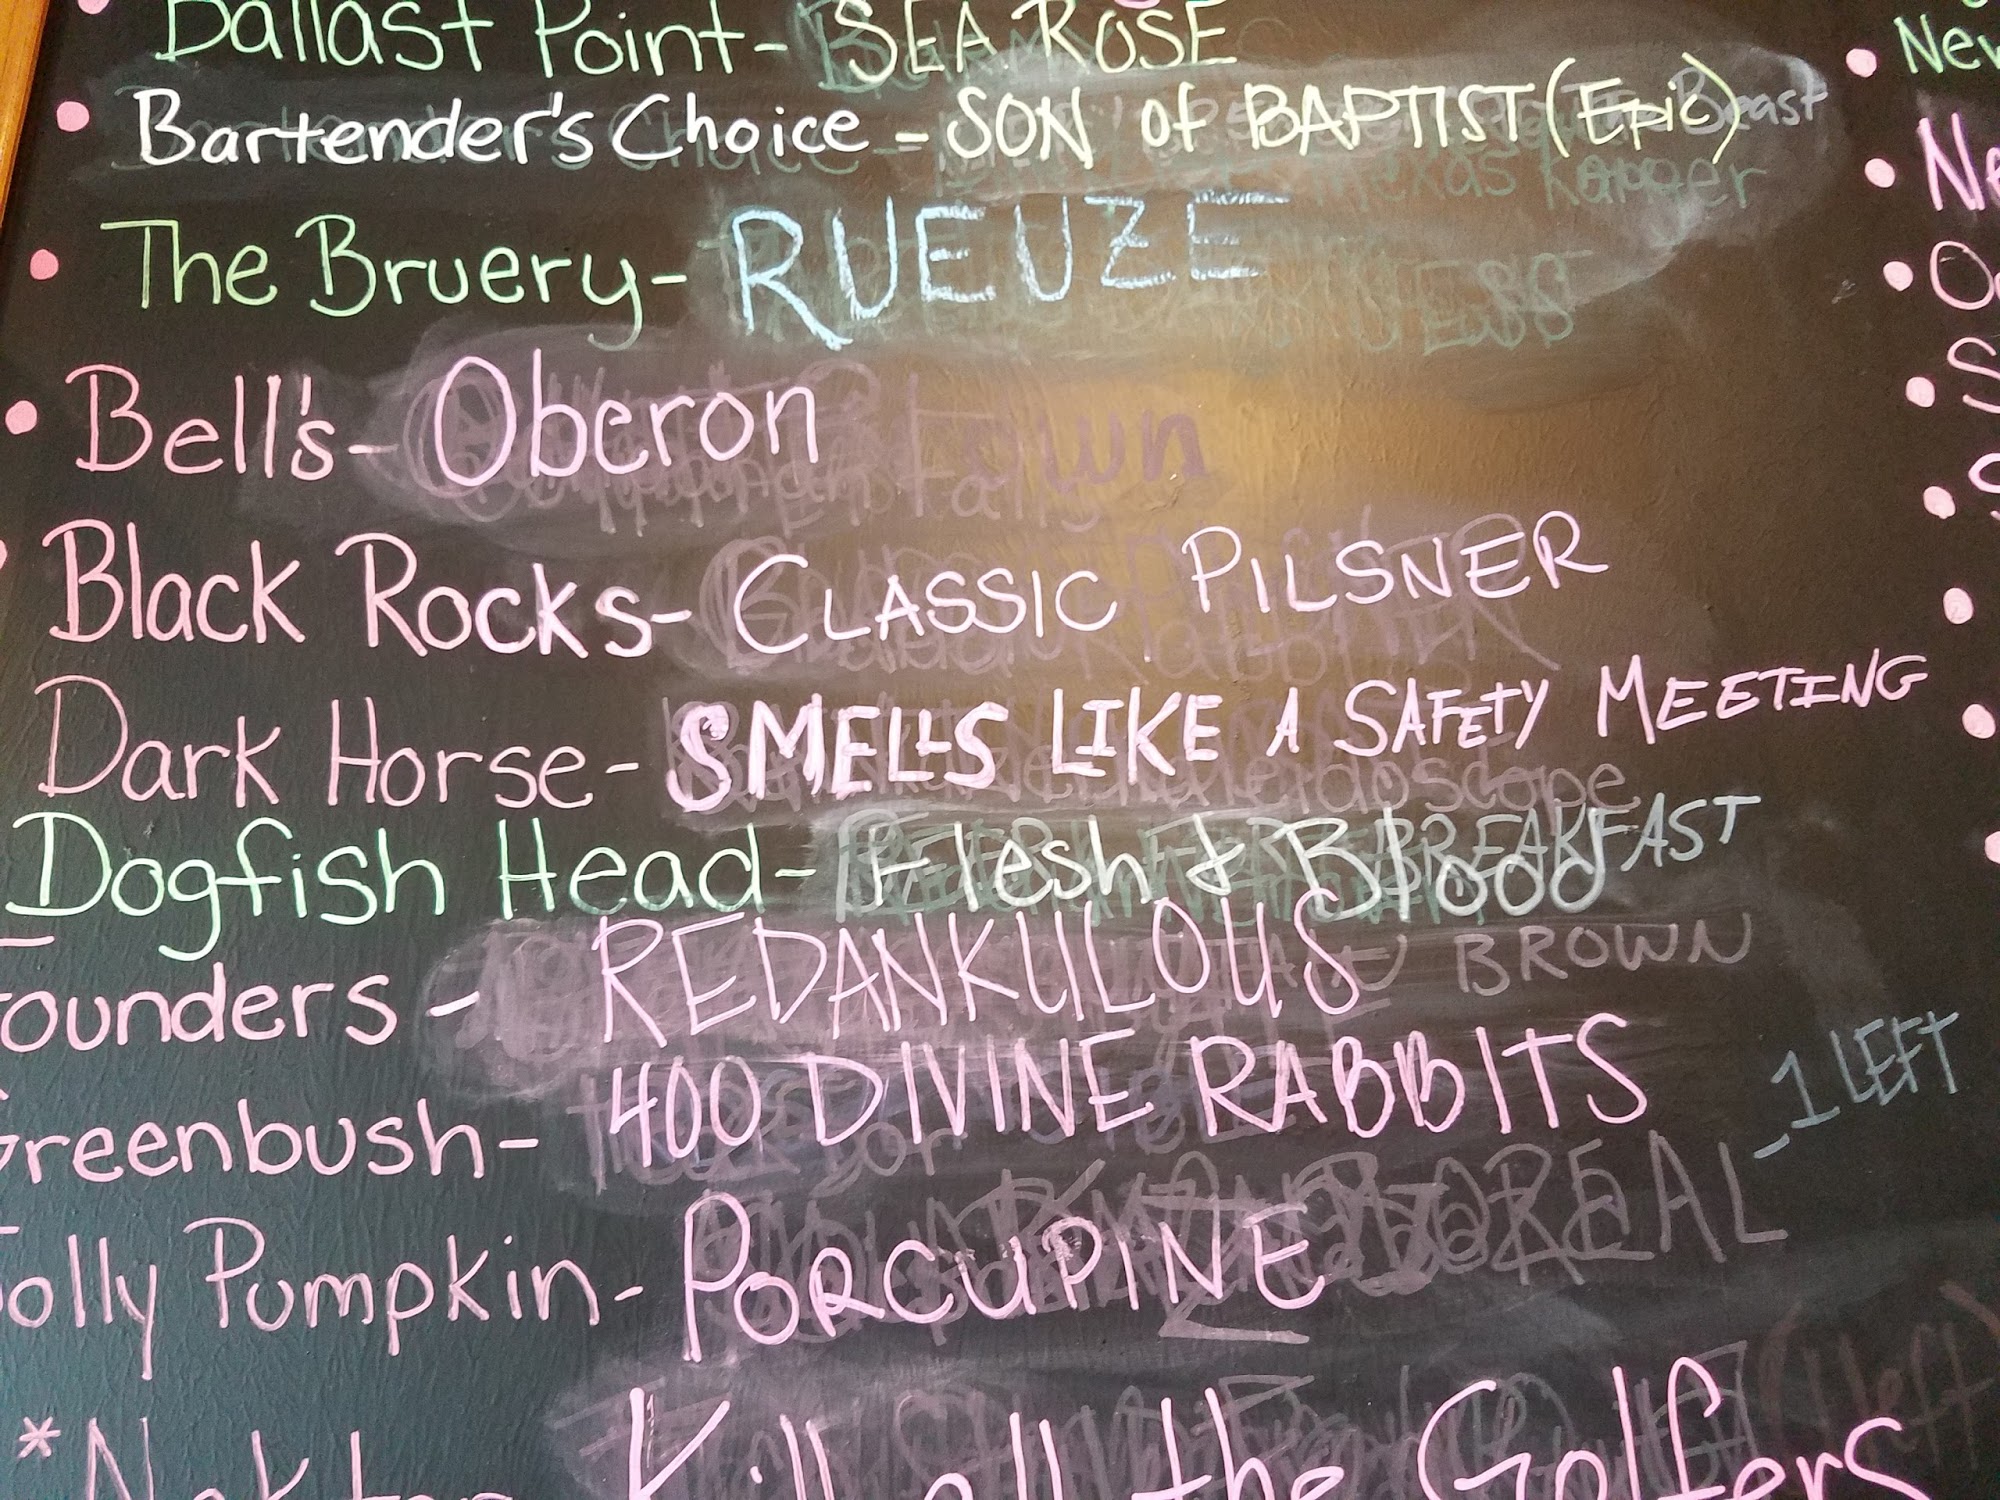 Ballast Point - SEA ROSE
Bartender's Choice - SON of BAPTIST (Epic)
The Bruery - RUEUZE
Bell's - Oberon
Black Rocks - CLASSIC PILSNER
Dark Horse - SMELLS LIKE A SAFETY MEETING
Dogfish Head - Flesh & Blood
Founders - REDANKULOUS
Greenbush - 400 DIVINE RABBITS - 1 LEFT
Jolly Pumpkin - PORCUPINE
* Kill all the Golfers
New